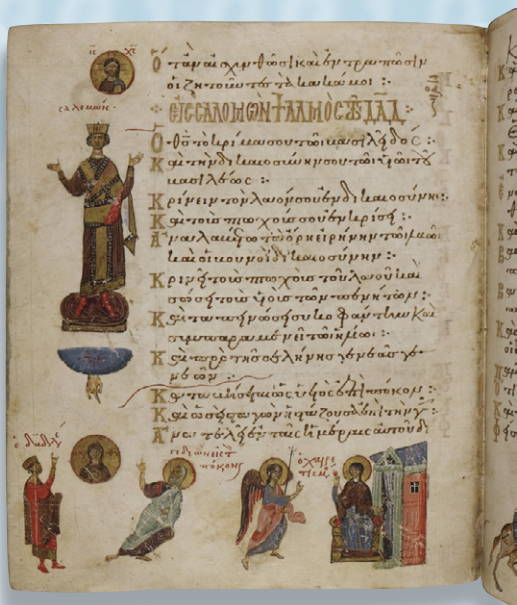 ΙC ΧC
Ὅταν αἰσχυνθῶσι καὶ ἐντραπῶσιν
οἱ ζητοῦντες τὰ κακά μοι :
σαλομών
ΕΙC CΑΛΟΜΩΝ ΨΑΛΜΟC ΤΩ ΔΑΔ
Ὁ θς τὸ κρίμα σου τῶι βασιλεῖ δός :
Καὶ τὴν δικαιοσύνην σου τῶι υἱῶι τοῦ
βασιλέως :
Κρίνειν τὸν λαόν σου ἐν δικαιοσύνηι :
Καὶ τοὺς πτωχούς σου ἐν κρίσει :
Ἀναλαβέτω τὰ ὄρη εἰρήνην τῶι λαῶι
καὶ οἱ βουνοὶ δικαιοσύνην :
Κρινεῖ τοὺς πτωχοὺς τοῦ λαοῦ καὶ
σώσει τοὺς υἱοὺς τῶν πενήτων :
Καὶ ταπεινώσει συκοφάντην καὶ
συμπαραμενεῖ τῶι ἡλίωι :
Καὶ πρὸ τῆς σελήνης γενεὰς γε
νεῶν :
Καταβήσεται ὡς ὑετὸς ἐπὶ πόκον :
Καὶ ὡσεὶ σταγὼν ἡ στάζουσα ἐπὶ τὴν γῆν
Ἀνατελεῖ ἐν ταῖς ἡμέραις αὐτοῦ δι
ὁ δαδ
γεδεὼν
πόκος
ὁ χαιρε
τισμός